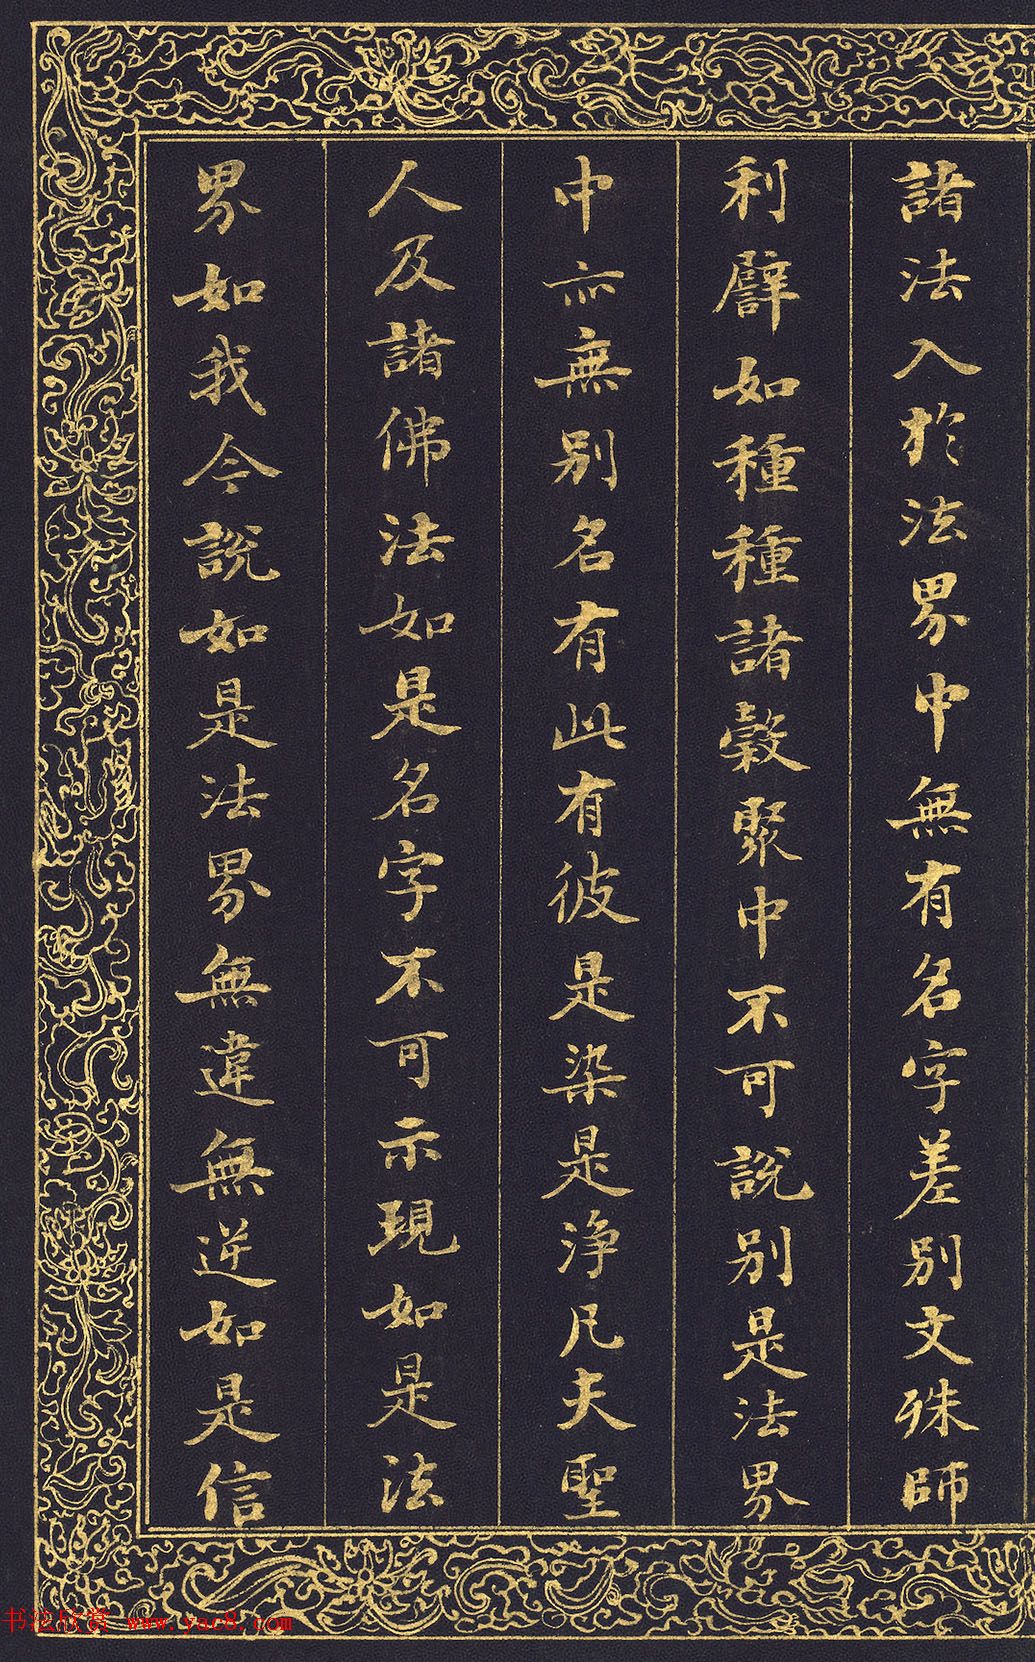 諸法入於法界中無有名字差別文殊師
利譬如種種諸穀聚中不可說別是法界
中亦無別名有此有彼是染是淨凡夫聖
人及諸佛法如是名字不可示現如是法
界如我今說如是法界無違無逆如是信
书法欣赏 www.yac8.com